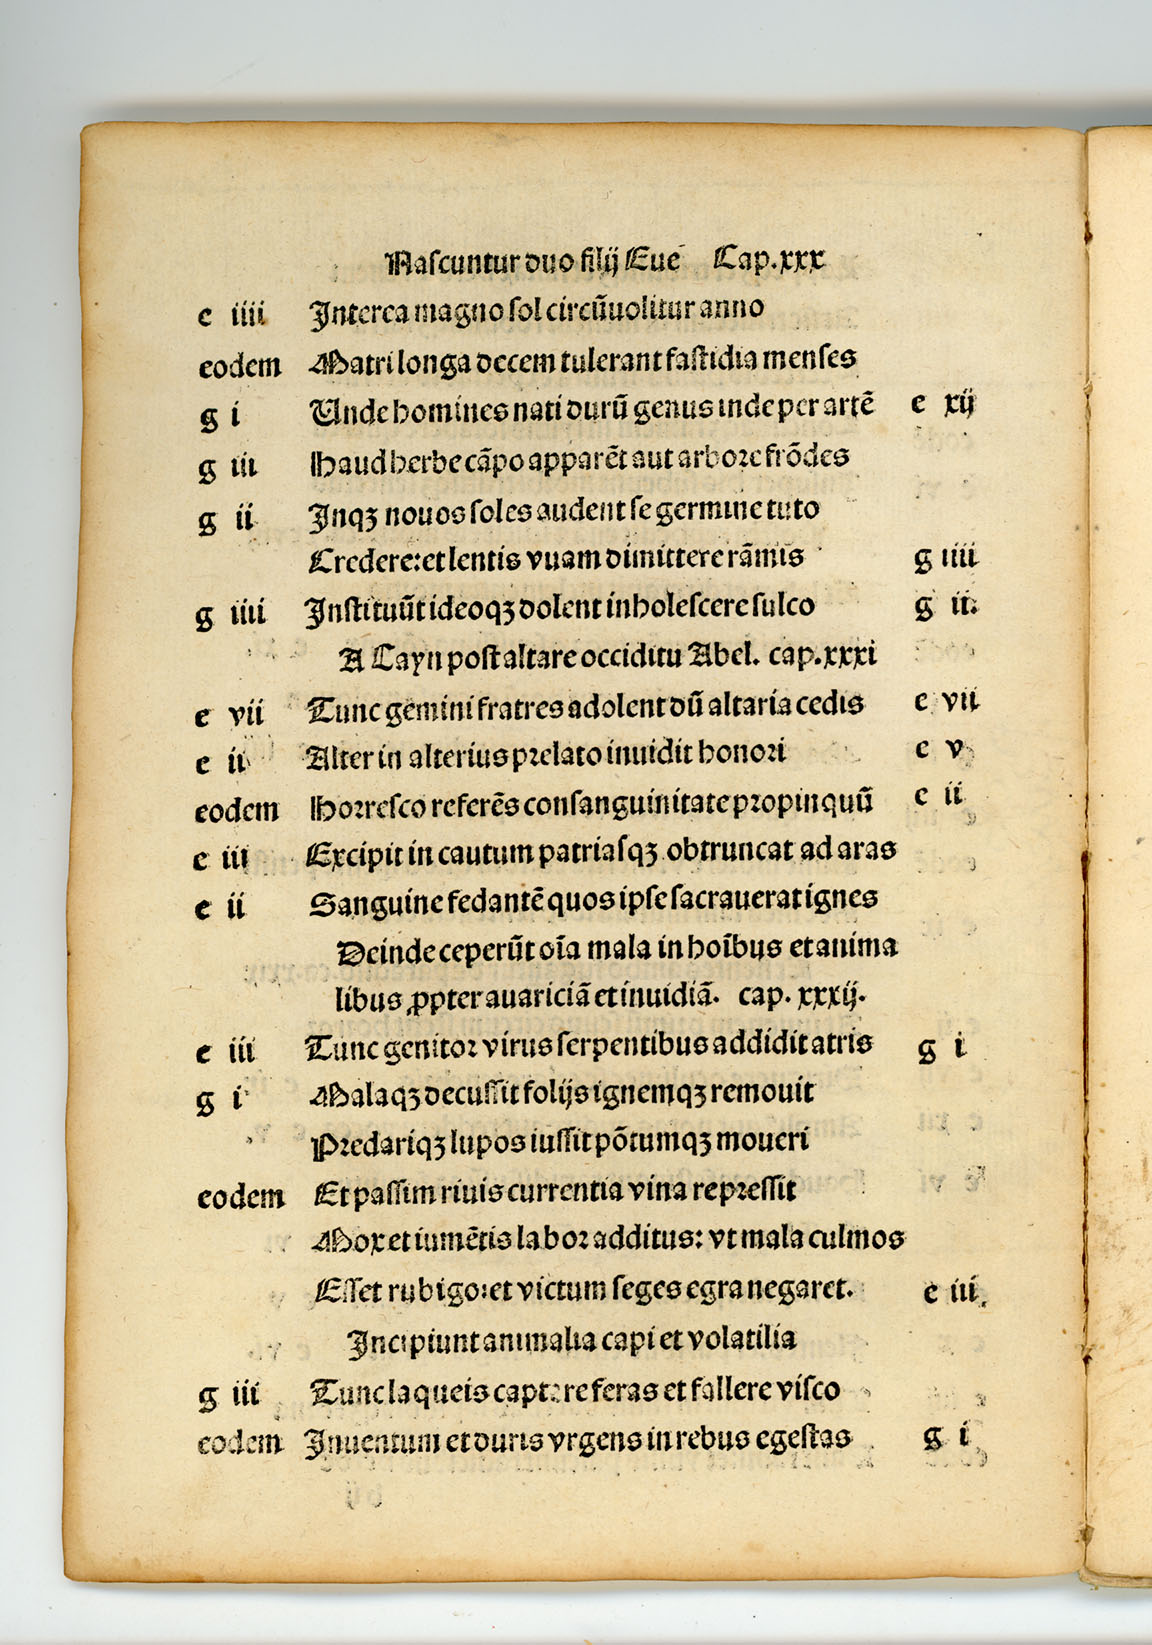 Nascuntur duo filij Eue Cap.xxx
e iiii Interea magno sol circũuolitur anno
eodem Matri longa decem tulerant fastidia menses
g i Unde homines nati durũ genus inde per artẽ e xij
g iii Haud herbe cãpo apparẽt aut arbore frõdes
g ii Inqꝫ nouos soles audent se germine tuto
Credere: et lentis vuam dimittere rãmis g iiii
g iiii Instituũt ideoqꝫ dolent inholescere sulco g ii
A Cayn post altare occiditu Abel. cap.xxxi
e vii Tunc gemini fratres adolent dũ altaria cedis e vii
e ii Alter in alterius prelato inuidit honori e v
eodem Horresco referẽs consanguinitate propinquũ e ii
e iii Excipit in cautum patriasqꝫ obtruncat ad aras
e ii Sanguine fedantẽ quos ipse sacrauerat ignes
Deinde ceperũt oĩa mala in hoĩbus et anima
libus ꝓpter auariciã et inuidiã. cap. xxxij.
e iii Tunc genitor virus serpentibus addidit atris g i
g i Malaqꝫ decussit folijs ignemqꝫ remouit
Predariqꝫ lupos iussit põtumqꝫ moueri
eodem Et passim riuis currentia vina repressit
Mox et iumẽtis labor additus: vt mala culmos
Esset rubigo: et victum seges egra negaret. e iii
Incipiunt animalia capi et volatilia
g iii Tunc laqueis captare feras et fallere visco
eodem Inuentum et duris vrgens in rebus egestas g i